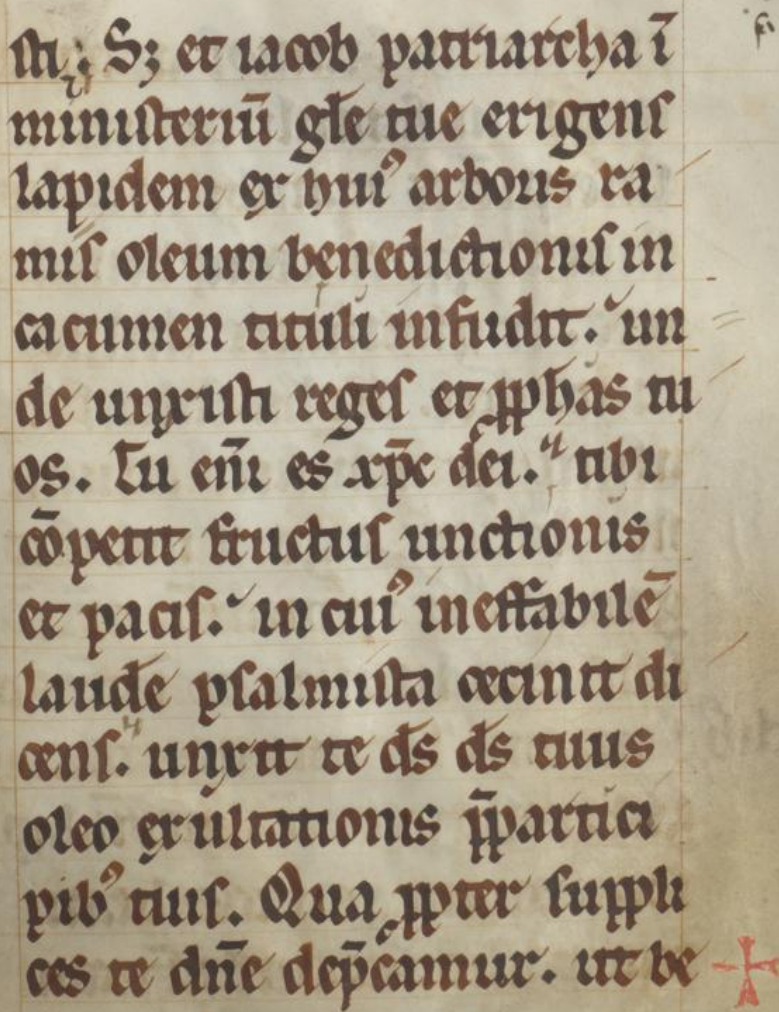 sti. Sꝫ et iacob patriarcha ī
ministeriū gl̄e tue erigens
lapidem ex huiꝰ arboris ra
mis oleum benedictionis in
cacumen tituli infudit. un
de unxisti reges et ꝓphas tu
os. Tu eni̅ es xp̄c dei. tibi
cōpetit fructus unctionis
et pacis. in cuiꝰ ineffabilē
laudē psalmista cecinit di
cens. unxit te d̄s d̄s tuus
oleo exultationis p̄partici
pibꝰ tuis. Qua ꝓpter suppli
ces te dn̄e dep̄camur. ut be